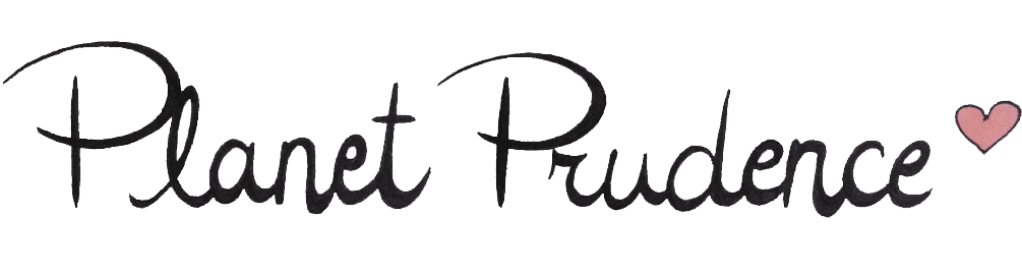 Planet Prudence